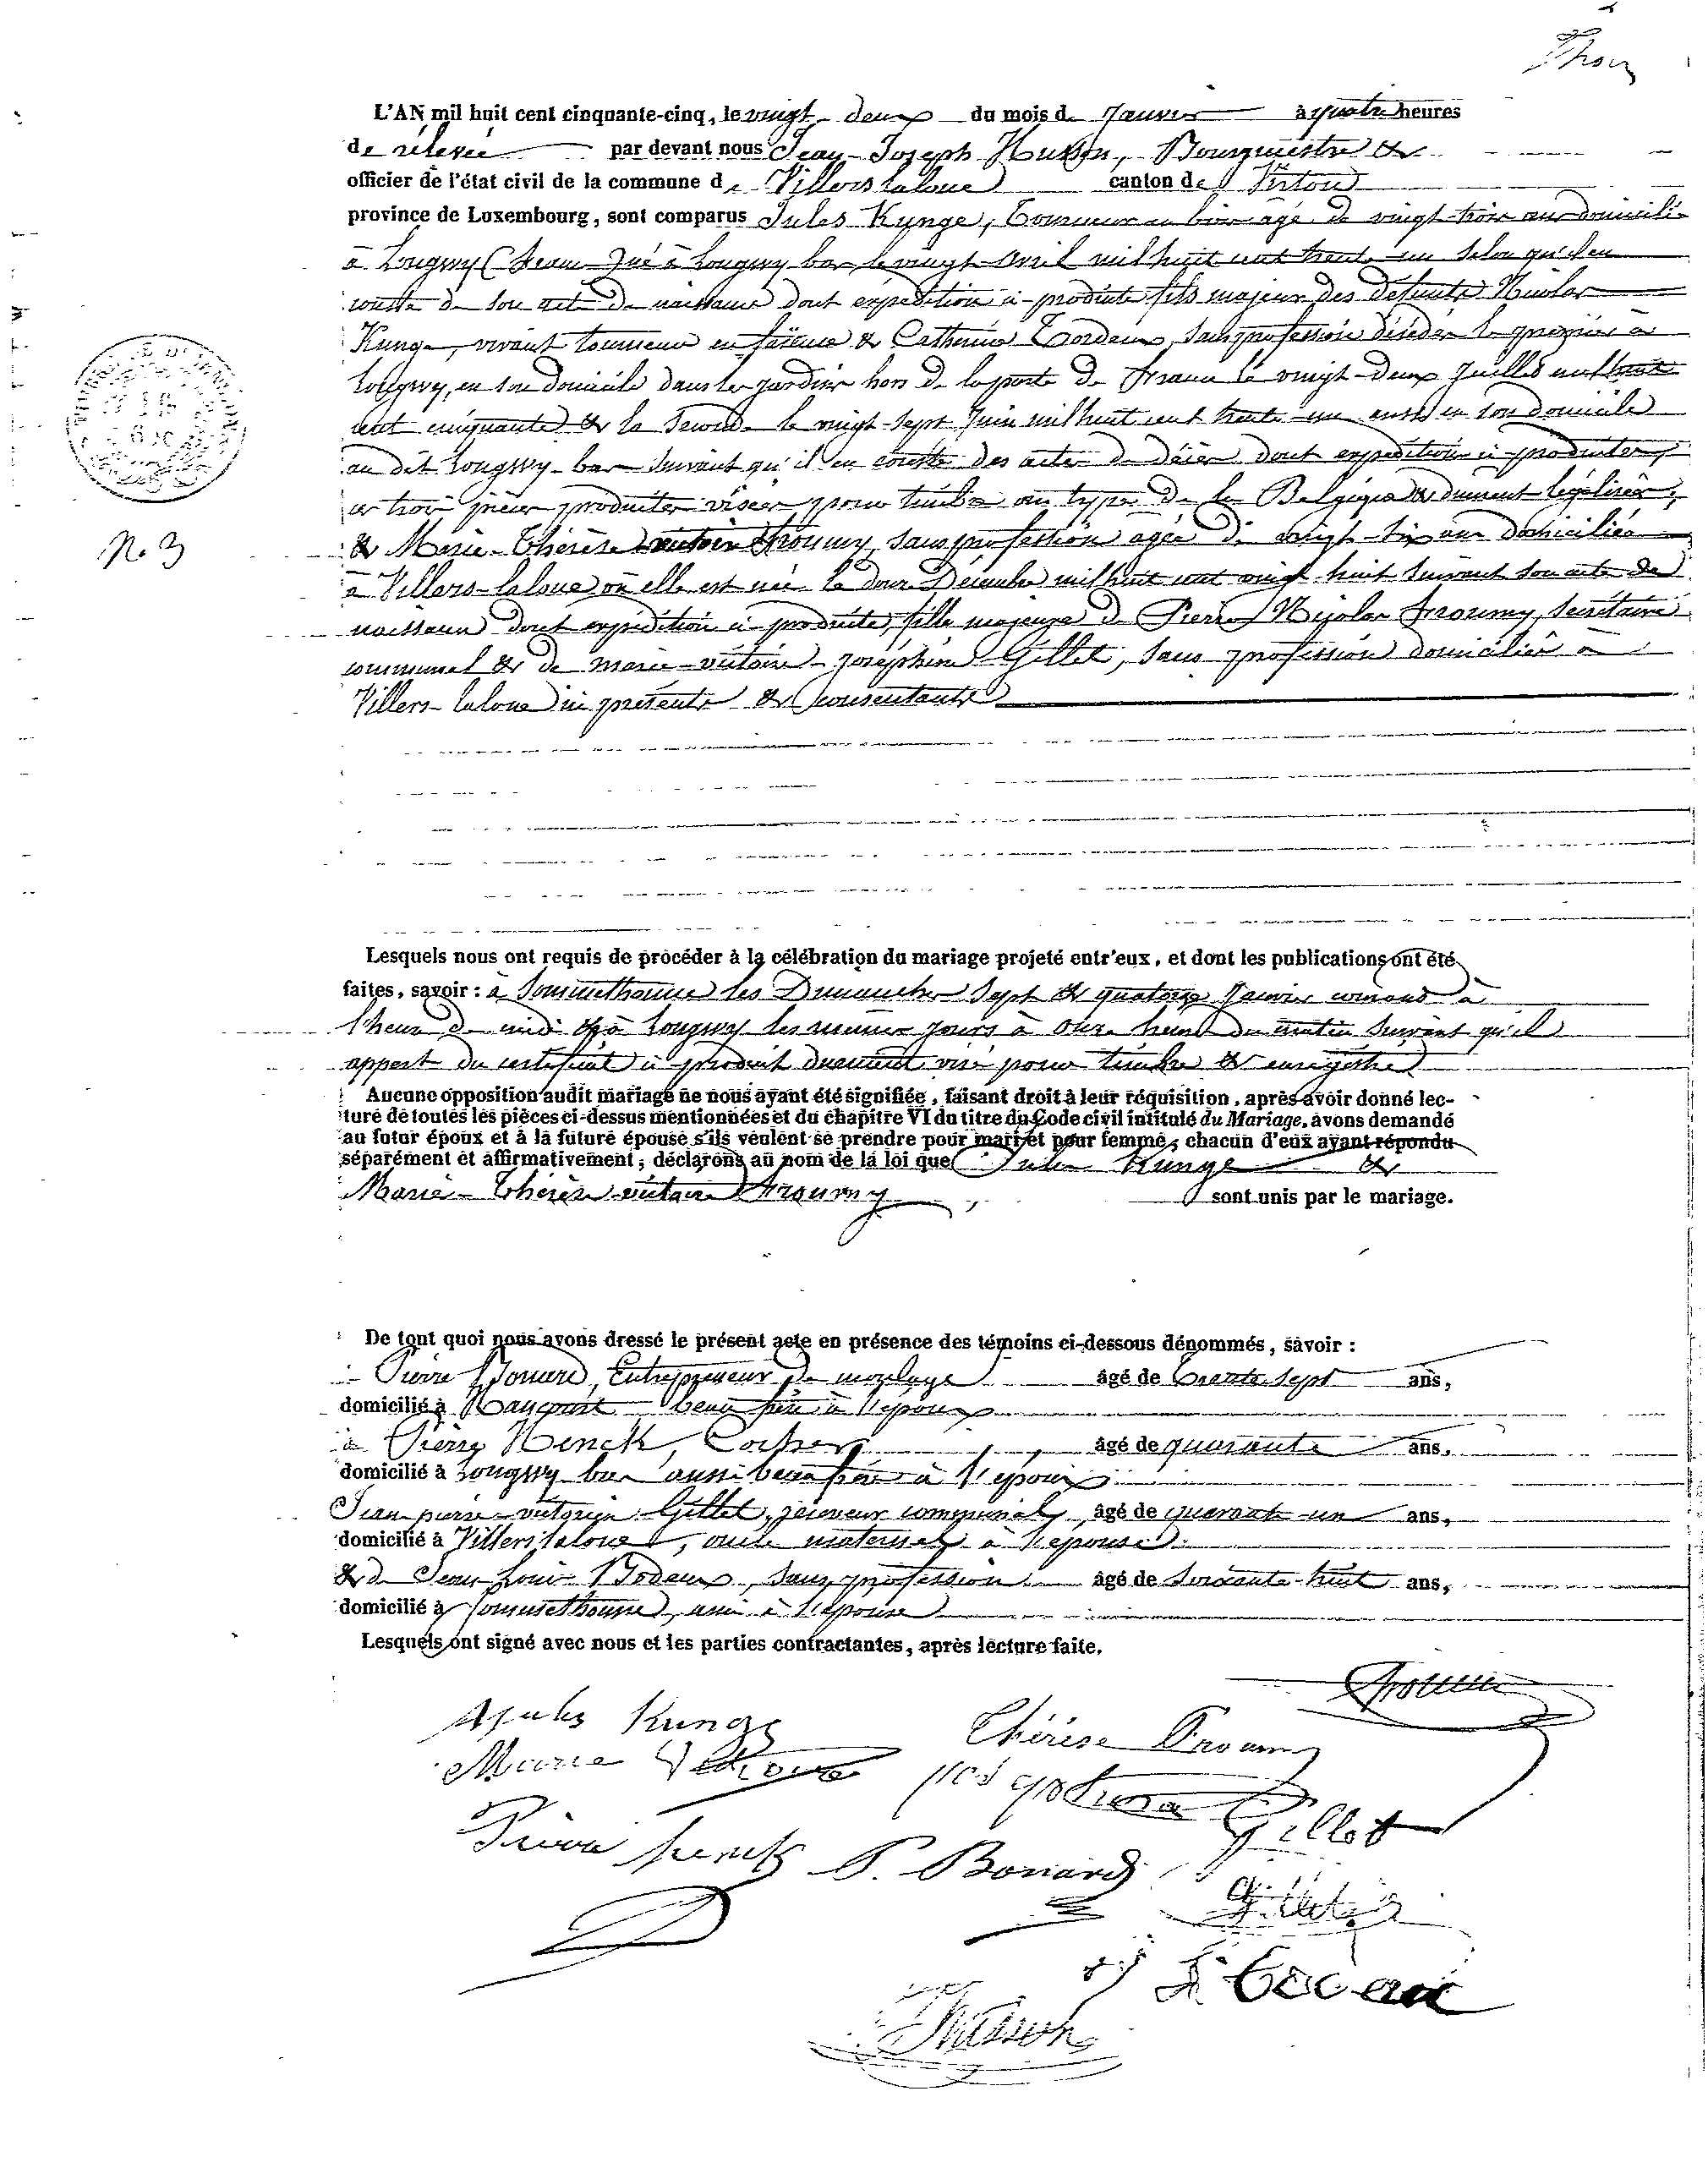 L'AN mil huit cent cinquante-cinq, le vingt-deux du mois de Janvier à quatre heures
de rélevée par devant nous Jean-Joseph Husson, Bourgmestre &
officier de l'état civil de la commune de Villers laloue canton de Virton
province de Luxembourg, sont comparus Jules Kunge, Tourneur en bois agé de vingt-trois ans domicilié
à Longwy (france) né à Longwy-bas le vingt avril mil huit cent trente-un selon qu'il en
conste de son acte de naissance dont expédition ci-produite fils majeur des défunts Nicolas
Kunge, vivant tourneur en faïence & Catherine sans profession décédés le premier à
Longwy, en son domicile dans les jardins hors de la porte de france le vingt-deux Juillet mil huit
cent cinquante & la seconde le vingt-sept Juin mil huit cent trente-un aussi en son domicile
au dit Longwy-bas suivant qu'il en conste des actes de décès dont expédition ci-produites,
ces trois pièces produites visées pour timbre au type de la Belgique & dument légalisées,
& Marie-Thérèse victoire froumy, sans profession agée de vingt-six ans domiciliée
à Villers-laloue où elle est née le douze Décembre mil huit cent vingt-huit suivant son acte de
naissance dont expédition ci-produite, fille majeure de Pierre Nicolas froumy, secrétaire
communal & de marie-victoire-joséphine Gillet, sans profession domiciliés à
Villers-laloue ici présents & consentants
N.o 3
Lesquels nous ont requis de procéder à la célébration du mariage projeté entr'eux, et dont les publications ont été
faites, savoir : à Sommethonne les Dimanches sept & quatorze Janvier courant à
l'heure de midi & à Longwy les mêmes jours à onze heures du matin suivant qu'il
appert du certificat ci-produit duement visé pour timbre & enregistré
Aucune opposition audit mariage ne nous ayant été signifiée, faisant droit à leur réquisition, après avoir donné lec-
ture de toutes les pièces ci-dessus mentionnées et du chapitre VI du titre du Code civil intitulé du Mariage, avons demandé
au futur époux et à la future épouse s'ils veulent se prendre pour mari et pour femme, chacun d'eux ayant répondu
séparément et affirmativement, déclarons au nom de la loi que Jules Kunge &
Marie-Thérèse victoire froumy sont unis par le mariage.
De tout quoi nous avons dressé le présent acte en présence des témoins ci-dessous dénommés, savoir :
Pierre Bonard, Entrepreneur de agé de trente-sept ans,
domicilié à beau frère à l'époux
Pierre Henck, Cocher, âgé de quarante ans,
domicilié à Longwy bas aussi beau frère à l'époux
Jean-pierre-victorin Gillet, receveur communal, âgé de quarante-un ans,
domicilié à Villers laloue, oncle maternel à l'épouse
& de Jean Louis sans profession âgé de soixante-huit ans,
domicilié à Sommethonne, ami à l'épouse
Lesquels ont signé avec nous et les parties contractantes, après lecture faite.
froumy
Jules Kunge
Thérèse Froumy
Marie Victoire Gillet
Pierre henck P. Bonard
Gillet
Husson